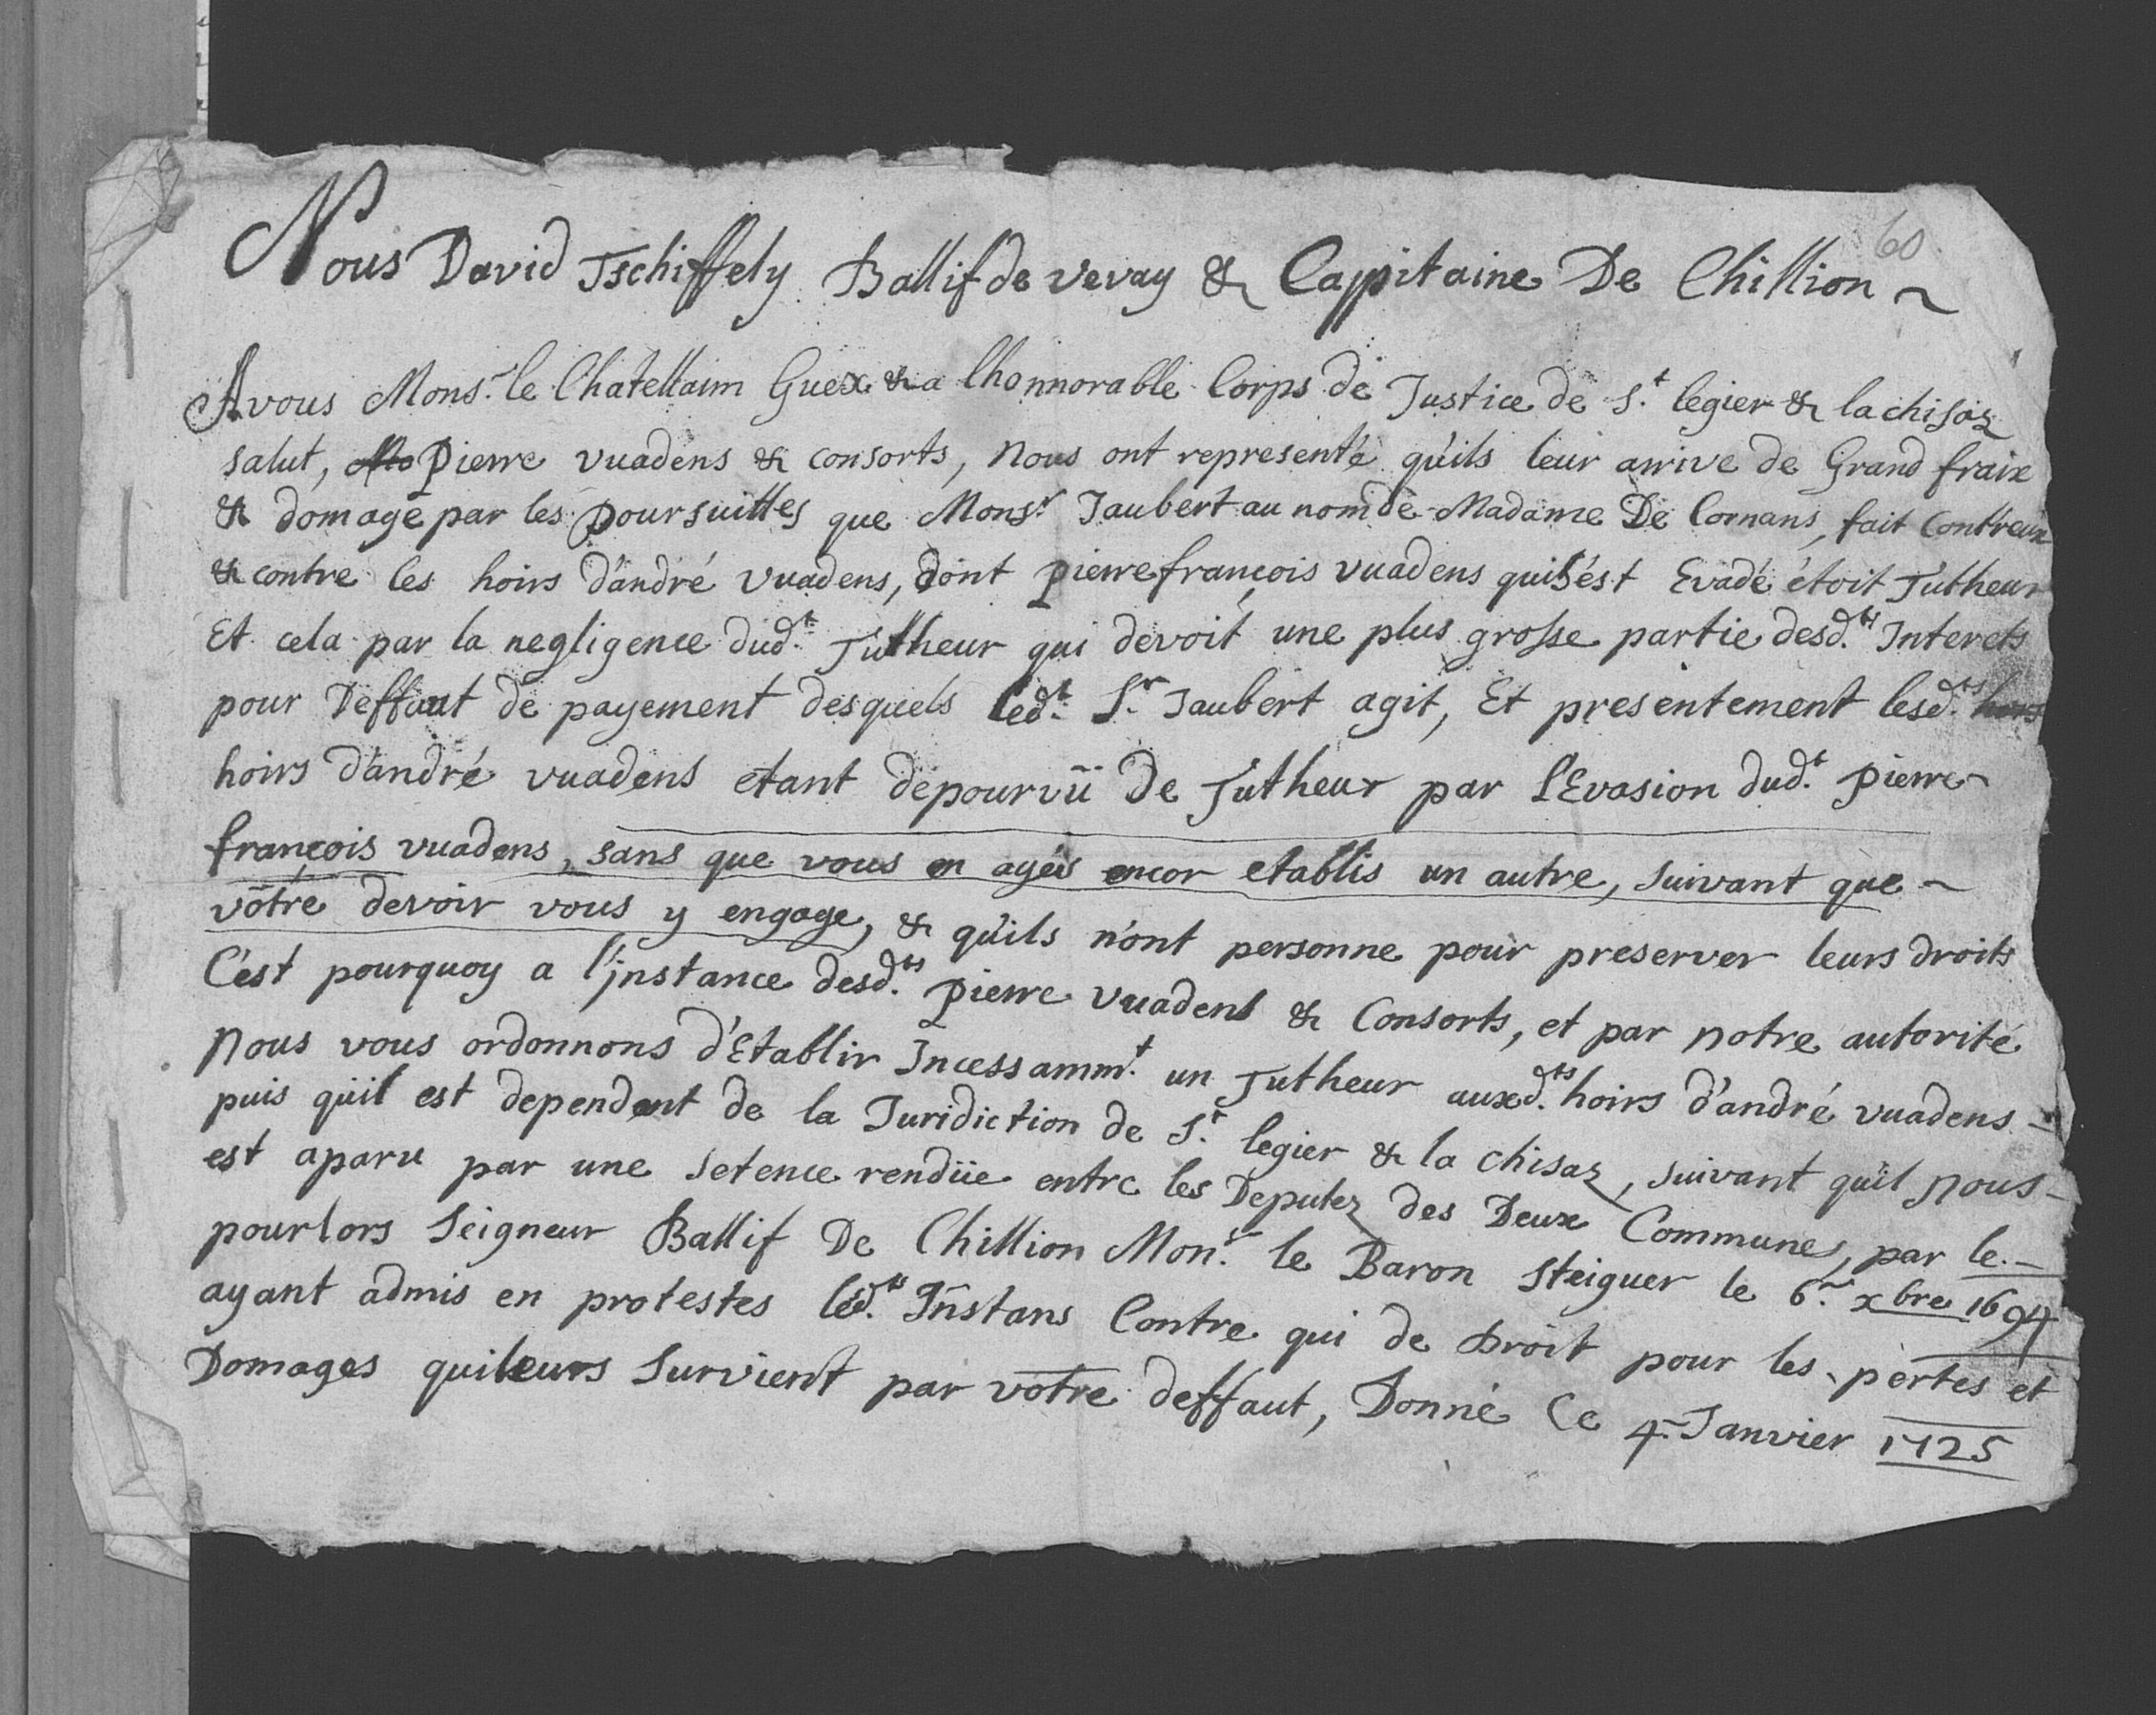 60
Nous David Tschiffely Ballif de Vevay & Cappitaine De Chillion ~
A vous Mons.r le Chatellaim Guex & a lhonnorable Corps de Justice de S.t legier & la chisaz
salut, Pierre vuadens & consorts, nous ont representé qu'ils leur arrive de Grand fraix
& domage par les poursuittes que Mons.r Jaubert au nom de Madame De Cornans, fait Contr'eux
& contre les hoirs d'andré vuadens, dont pierrefrançois vuadens qui s'ést Evadé étoit Tutheur
Et cela par la negligence dud.t Tutheur qui devoit une plus grosse partie desd.ts Interets
pour Deffaut de payement desquels led.t S.r Jaubert agit, Et presentement lesd.ts hoirs
hoirs d'andré vuadens etant depourvû De Tutheur par l'Evasion dud.t pierre-
françois vuadens, sans que vous en ayés encor etablis un autre, suivant que ~
vôtre devoir vous y engage, & qu'ils n'ont personne pour preserver leurs droits
C'est pourquoy a l'jnstance desd.ts pierre vuadens & Consorts, et par notre autorité
nous vous ordonnons d'Etablir Incessamm.t un Tutheur auxd.ts hoirs d'andré vuadens -
puis qu'il est dependent de la Juridiction de S.t legier & la chisaz, suivant qu'il nous -
est aparu par une setence rendüe entre les Deputez des Deux Communes, par le -
pourlors Seigneur Ballif De Chillion Mon.r le Baron Steiguer le 6.e xbre 1694
ayant admis en protestes led.ts Instans Contre qui de Droit pour les pertes et
Domages quileurs survient par votre deffaut, Donné Ce 4.e Janvier 1725